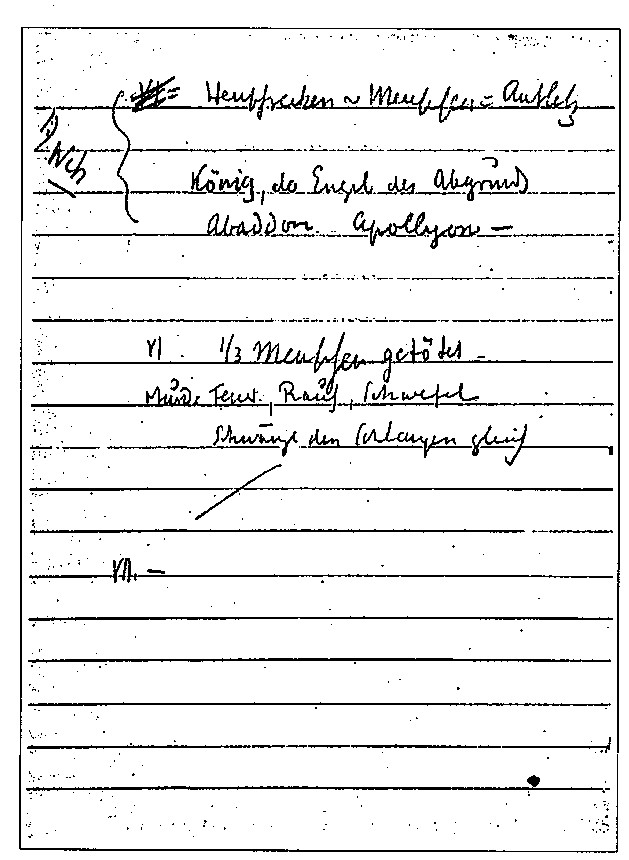 Heuschrecken ~ Menschen = Antlitz
König, der Engel des Abgrunds
Abaddon. Apollyon —
VI. 1/3 Menschen getötet —
Münder Feuer, Rauch, Schwefel
Schwänze den Schlangen gleich
VII. —